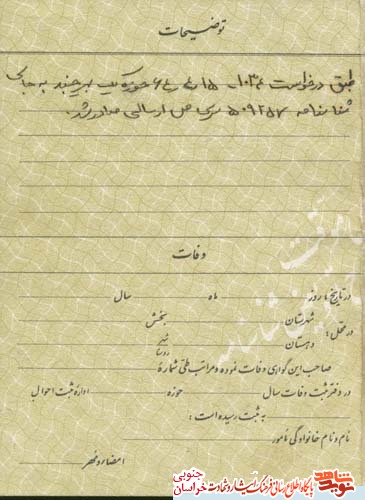 توضیحات
طبق درخواست ۱۰۳۴ حوزه یک بیرجند به جای
شناسنامه ۵۰۹۲۵۷ سری ارسالی صادر شد.
وفات
در تاریخ: روز ماه سال
در محل: شهرستان بخش
دهستان شهر روستا
صاحب این گواهی وفات نموده و مراتب طی شماره
در دفتر ثبت وفات سال حوزه اداره ثبت احوال
به ثبت رسیده است:
نام و نام خانوادگی مأمور:
امضاء و مهر
نوید شاهد
پایگاه اطلاع رسانی فرهنگ ایثار و شهادت خراسان جنوبی